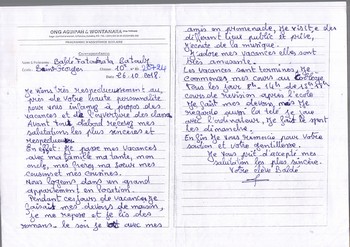 ONG AGUIPAM & WONTANARA
Correspondance
Balde Fatoumata Batouly
Saint Georges 10ème
Date 26.10.2018.
Je viens très respectueusement au-
près de votre haute personnalité
pour vous informer à propos des
vacances et de l'ouverture des classes.
Avant tout d'abord recevez mes
salutations les plus sincères et
respectueuses.
En effet Je passe mes vacances
avec ma famille ma tante, mon
oncle, mes frères, ma sœur mes
cousins et mes cousines.
Nous logeons dans un grand
appartement en location.
Pendant ces jours de vacances Je
faisais mes devoirs de maison,
Je me repose et Je lis des
romans. le soir Je avec mes
amis en promenade, Je visite des
différent lieu public et privé,
J'écoute de la musique.
J'adore mes vacances elles sont
très amusante.
Les vacances sont terminées, Je
commence mes cours au Collège
Tous les jours 8h 14h de 15h 17h
cours de révision après l'école
Je fait mes devoirs, mes
regarde aussi la télé Je joue
avec l'ordinateur, Je fait le sport
les dimanche.
Enfin Je vous remercie pour votre
soutien et votre gentillesse.
Je vous prit d'accepté mes
salutation les plus sincère.
Votre élève Baldé